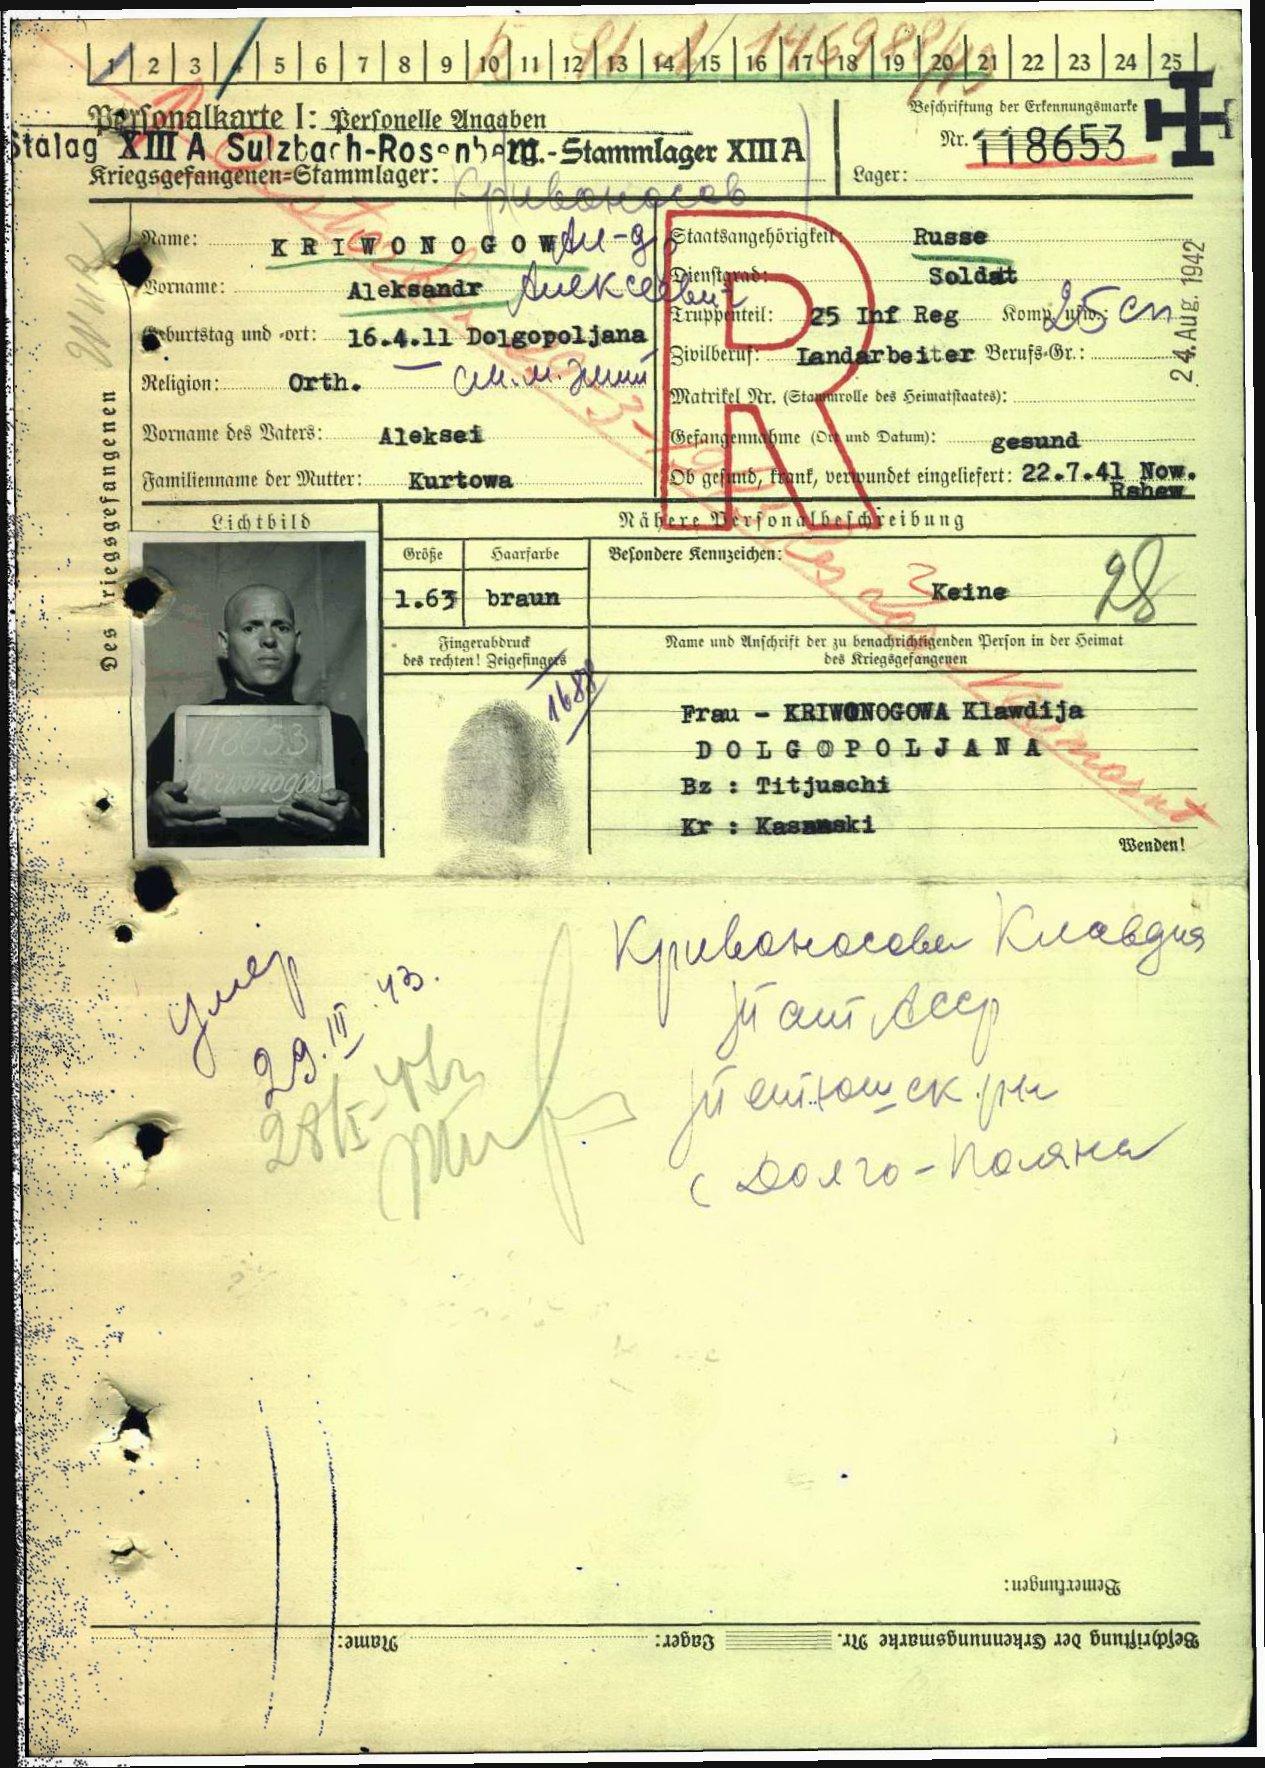 1 2 3 4 5 6 7 8 9 10 11 12 13 14 15 16 17 18 19 20 21 22 23 24 25
Personalkarte I: Personelle Angaben
Beschriftung der Erkennungsmarke
Stalag XIII A Sulzbach-Rosenberg.-Stammlager XIII A
Nr. 118653
Kriegsgefangenen-Stammlager:
Lager:
Кривоносов
Des Kriegsgefangenen
Name: KRIWONOGOW Ал-др
Vorname: Aleksandr Алексеевич
Geburtstag und -ort: 16.4.11 Dolgopoljana
Religion: Orth.
Vorname des Vaters: Aleksei
Familienname der Mutter: Kurtowa
R
Staatsangehörigkeit: Russe
Dienstgrad: Soldat
Truppenteil: 25 Inf Reg Komp. usw.: 25 сп
Zivilberuf: Landarbeiter Berufs-Gr.:
Matrikel Nr. (Stammrolle des Heimatstaates):
Gefangennahme (Ort und Datum): gesund
Ob gesund, krank, verwundet eingeliefert: 22.7.41 Now.
Rshew
24. Aug. 1942
Lichtbild
Nähere Personalbeschreibung
Größe
Haarfarbe
Besondere Kennzeichen:
1.63
braun
Keine
28
Fingerabdruck
des rechten! Zeigefingers
1688
Name und Anschrift der zu benachrichtigenden Person in der Heimat
des Kriegsgefangenen
118653
Kriwonogow
Frau - KRIWONOGOWA Klawdija
DOLGOPOLJANA
Bz : Titjuschi
Kr : Kasanski
Wenden!
Кривоносова Клавдия
Тат АССР
Тетюшск. рн
с Долго-Поляна
умер
29.III.43.
Bemerkungen:
Beschriftung der Erkennungsmarke Nr. Lager: Name: